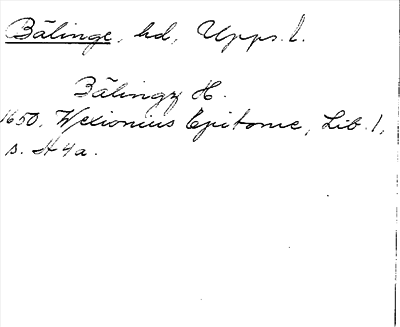 Bälinge, hd, Upps. l.
Bälingz H.
1650. Wexionius Epitome, Lib. 1,
s. H 4 a.